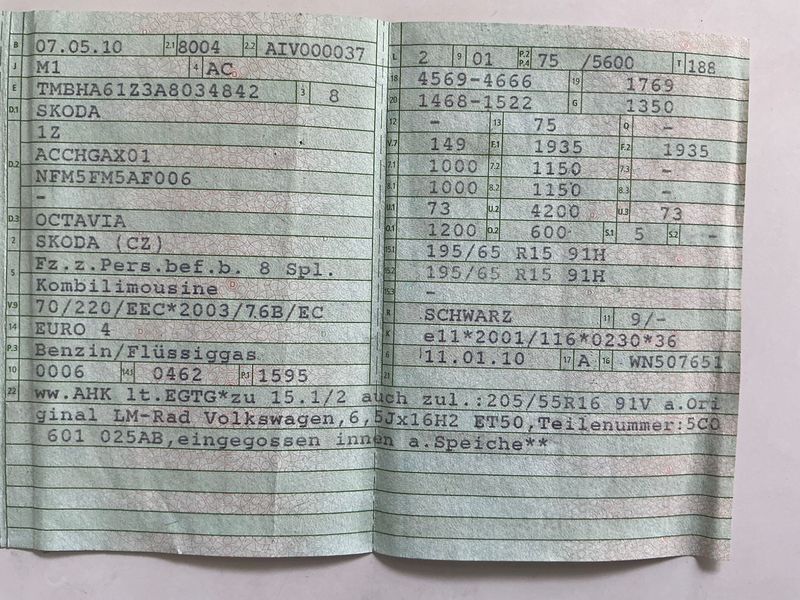 B 07.05.10 2.1 8004 2.2 AIV000037
J M1 4 AC
E TMBHA61Z3A8034842 3 8
D.1 SKODA
1Z
D.2 ACCHGAX01
NFM5FM5AF006
-
D.3 OCTAVIA
2 SKODA (CZ)
5 Fz.z.Pers.bef.b. 8 Spl.
Kombilimousine
V.9 70/220/EEC*2003/76B/EC
14 EURO 4
P.3 Benzin/Flüssiggas
10 0006 14.1 0462 P.1 1595
L 2 9 01 P.2 P.4 75 /5600 T 188
18 4569-4666 19 1769
20 1468-1522 G 1350
12 - 13 75 Q -
V.7 149 F.1 1935 F.2 1935
7.1 1000 7.2 1150 7.3 -
8.1 1000 8.2 1150 8.3 -
U.1 73 U.2 4200 U.3 73
O.1 1200 O.2 600 S.1 5 S.2 -
15.1 195/65 R15 91H
15.2 195/65 R15 91H
15.3 -
R SCHWARZ 11 9/-
K e11*2001/116*0230*36
6 11.01.10 17 A 16 WN507651
21
22 ww.AHK lt.EGTG*zu 15.1/2 auch zul.:205/55R16 91V a.Ori
ginal LM-Rad Volkswagen,6,5Jx16H2 ET50,Teilenummer:5C0
601 025AB,eingegossen innen a.Speiche**